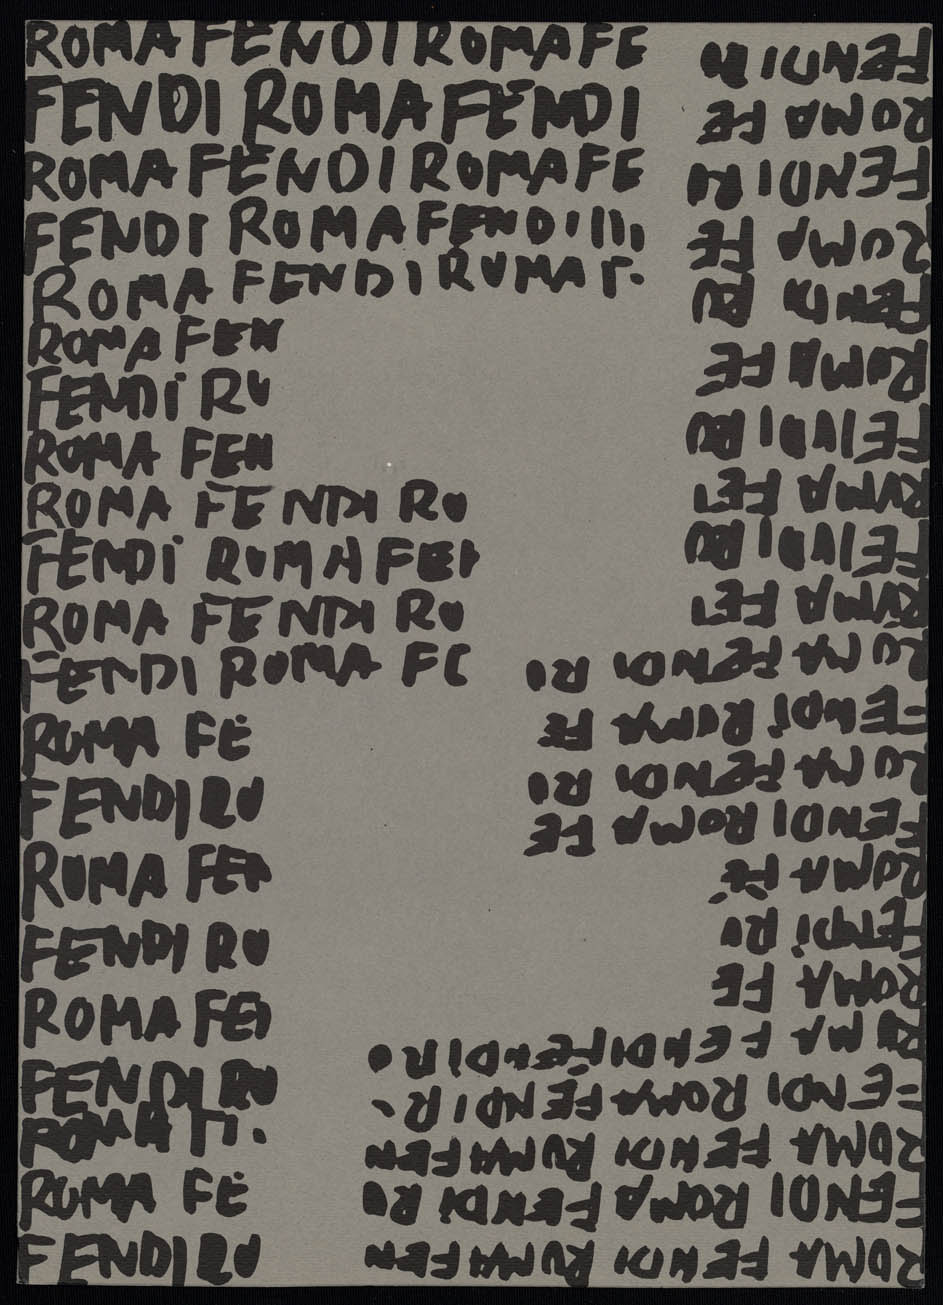 ROMA FENDI ROMA FE
FENDI ROMA FENDI
ROMA FENDI ROMA FE
FENDI ROMA FENDI
ROMA FENDI ROMA F.
ROMA FEN
FENDI RO
ROMA FEN
ROMA FENDI RO
FENDI ROMA FEN
ROMA FENDI RO
FENDI ROMA FE
ROMA FE
FENDI RO
ROMA FEN
FENDI RO
ROMA FEN
FENDI RO
ROMA
ROMA FE
FENDI RO
ROMA FENDI ROMA FEN
FENDI ROMA FENDI RO
ROMA FENDI ROMA FEN
FENDI ROMA FENDI R.
ROMA FENDI FENDI RO
ROMA FE
FENDI RO
ROMA FE
FENDI ROMA FE
ROMA FENDI RO
FENDI ROMA FE
ROMA FENDI RO
ROMA FE
FENDI RO
ROMA FE
FENDI RO
ROMA FE
FENDI RO
ROMA FE
FENDI RO
ROMA FE
FENDI RO